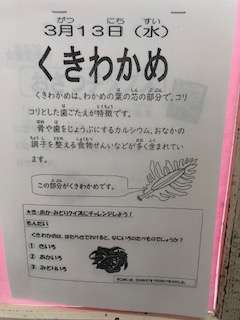 3月13日（水）
くきわかめ
くきわかめは、わかめの葉の芯の部分で、コリ
コリとした歯ごたえが特徴です。
骨や歯をじょうぶにするカルシウム、おなかの
調子を整える食物せんいなどが多く含まれてい
ます。
この部分がくきわかめです。
★き・あか・みどりクイズにチャレンジしよう！
もんだい
くきわかめは、はたらきでわけると、なにいろのたべものでしょうか？
① きいろ
② あかいろ
③ みどりいろ